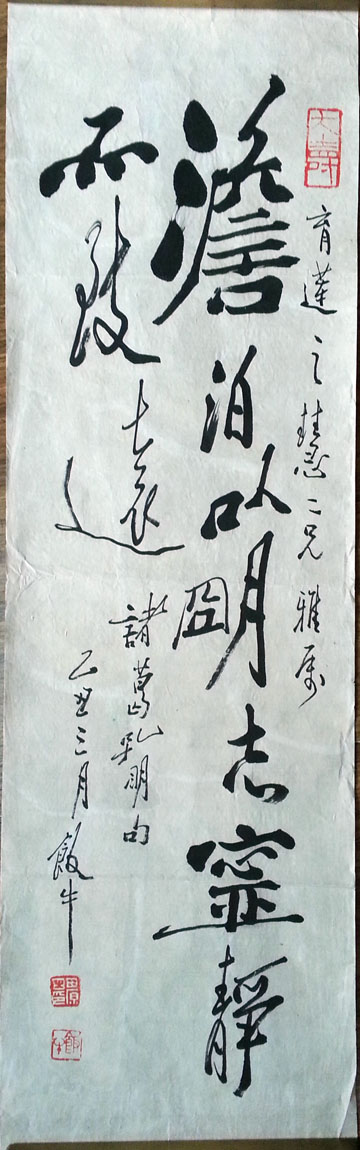 育蓮之慧二兄雅属
澹泊以朙志寧靜
而致遠
諸葛孔明句
乙丑三月飯牛